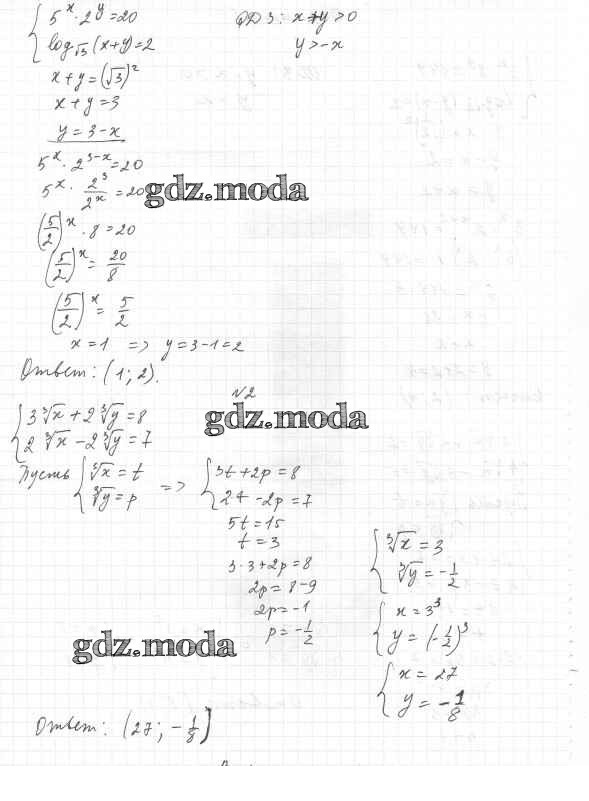 { 5^x · 2^y = 20    ОДЗ: x+y>0
{ log_√3 (x+y) = 2    y>-x
x+y = (√3)^2
x+y = 3
y = 3-x
5^x · 2^(3-x) = 20
5^x · 2^3/2^x = 20
gdz.moda
(5/2)^x · 8 = 20
(5/2)^x = 20/8
(5/2)^x = 5/2
x = 1 => y = 3-1 = 2
Ответ: (1; 2).
№2
gdz.moda
{ 3 ∛x + 2 ∛y = 8
{ 2 ∛x - 2 ∛y = 7
Пусть { ∛x = t => { 3t + 2p = 8
{ ∛y = p    { 2t - 2p = 7
5t = 15
t = 3
3·3+2p = 8
2p = 8-9
2p = -1
p = -1/2
{ ∛x = 3
{ ∛y = -1/2
{ x = 3^3
{ y = (-1/2)^3
{ x = 27
{ y = -1/8
gdz.moda
Ответ: (27; -1/8)